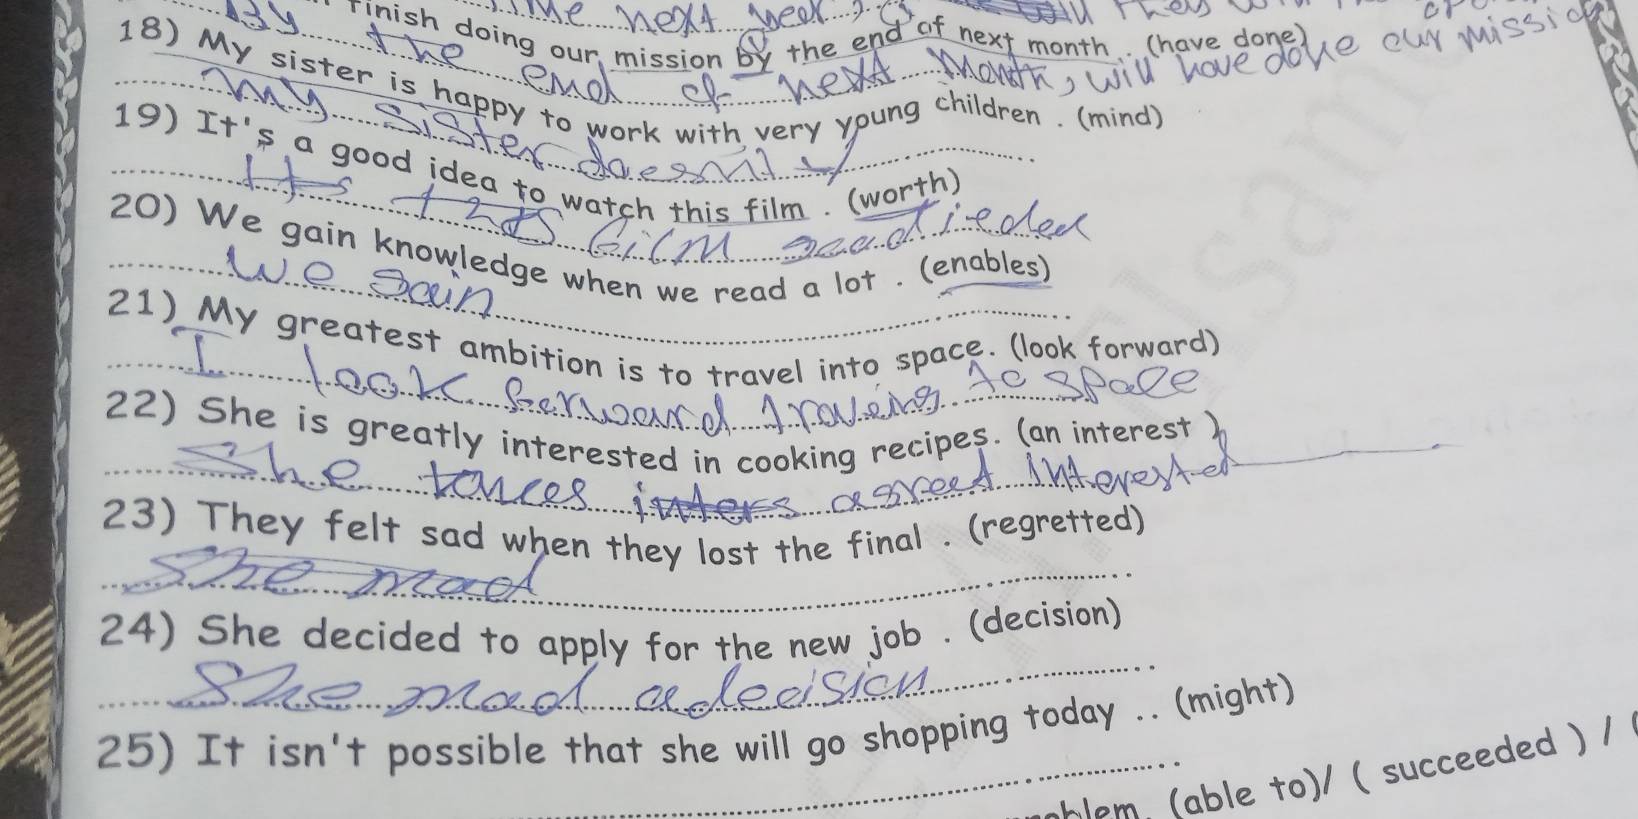 By the next week, 
finish doing our mission by the end of next month . (have done)
the end of next month, will have done our mission
18) My sister is happy to work with very young children . (mind)
my sister doesn't
19) It's a good idea to watch this film . (worth)
It's film
20) We gain knowledge when we read a lot . (enables)
We gain
21) My greatest ambition is to travel into space. (look forward)
I look forward traveing to space
22) She is greatly interested in cooking recipes. (an interest )
She interested
23) They felt sad when they lost the final . (regretted)
She mad
24) She decided to apply for the new job . (decision)
She mad a decision
25) It isn't possible that she will go shopping today .. (might)
(able to)/ ( succeeded ) / (